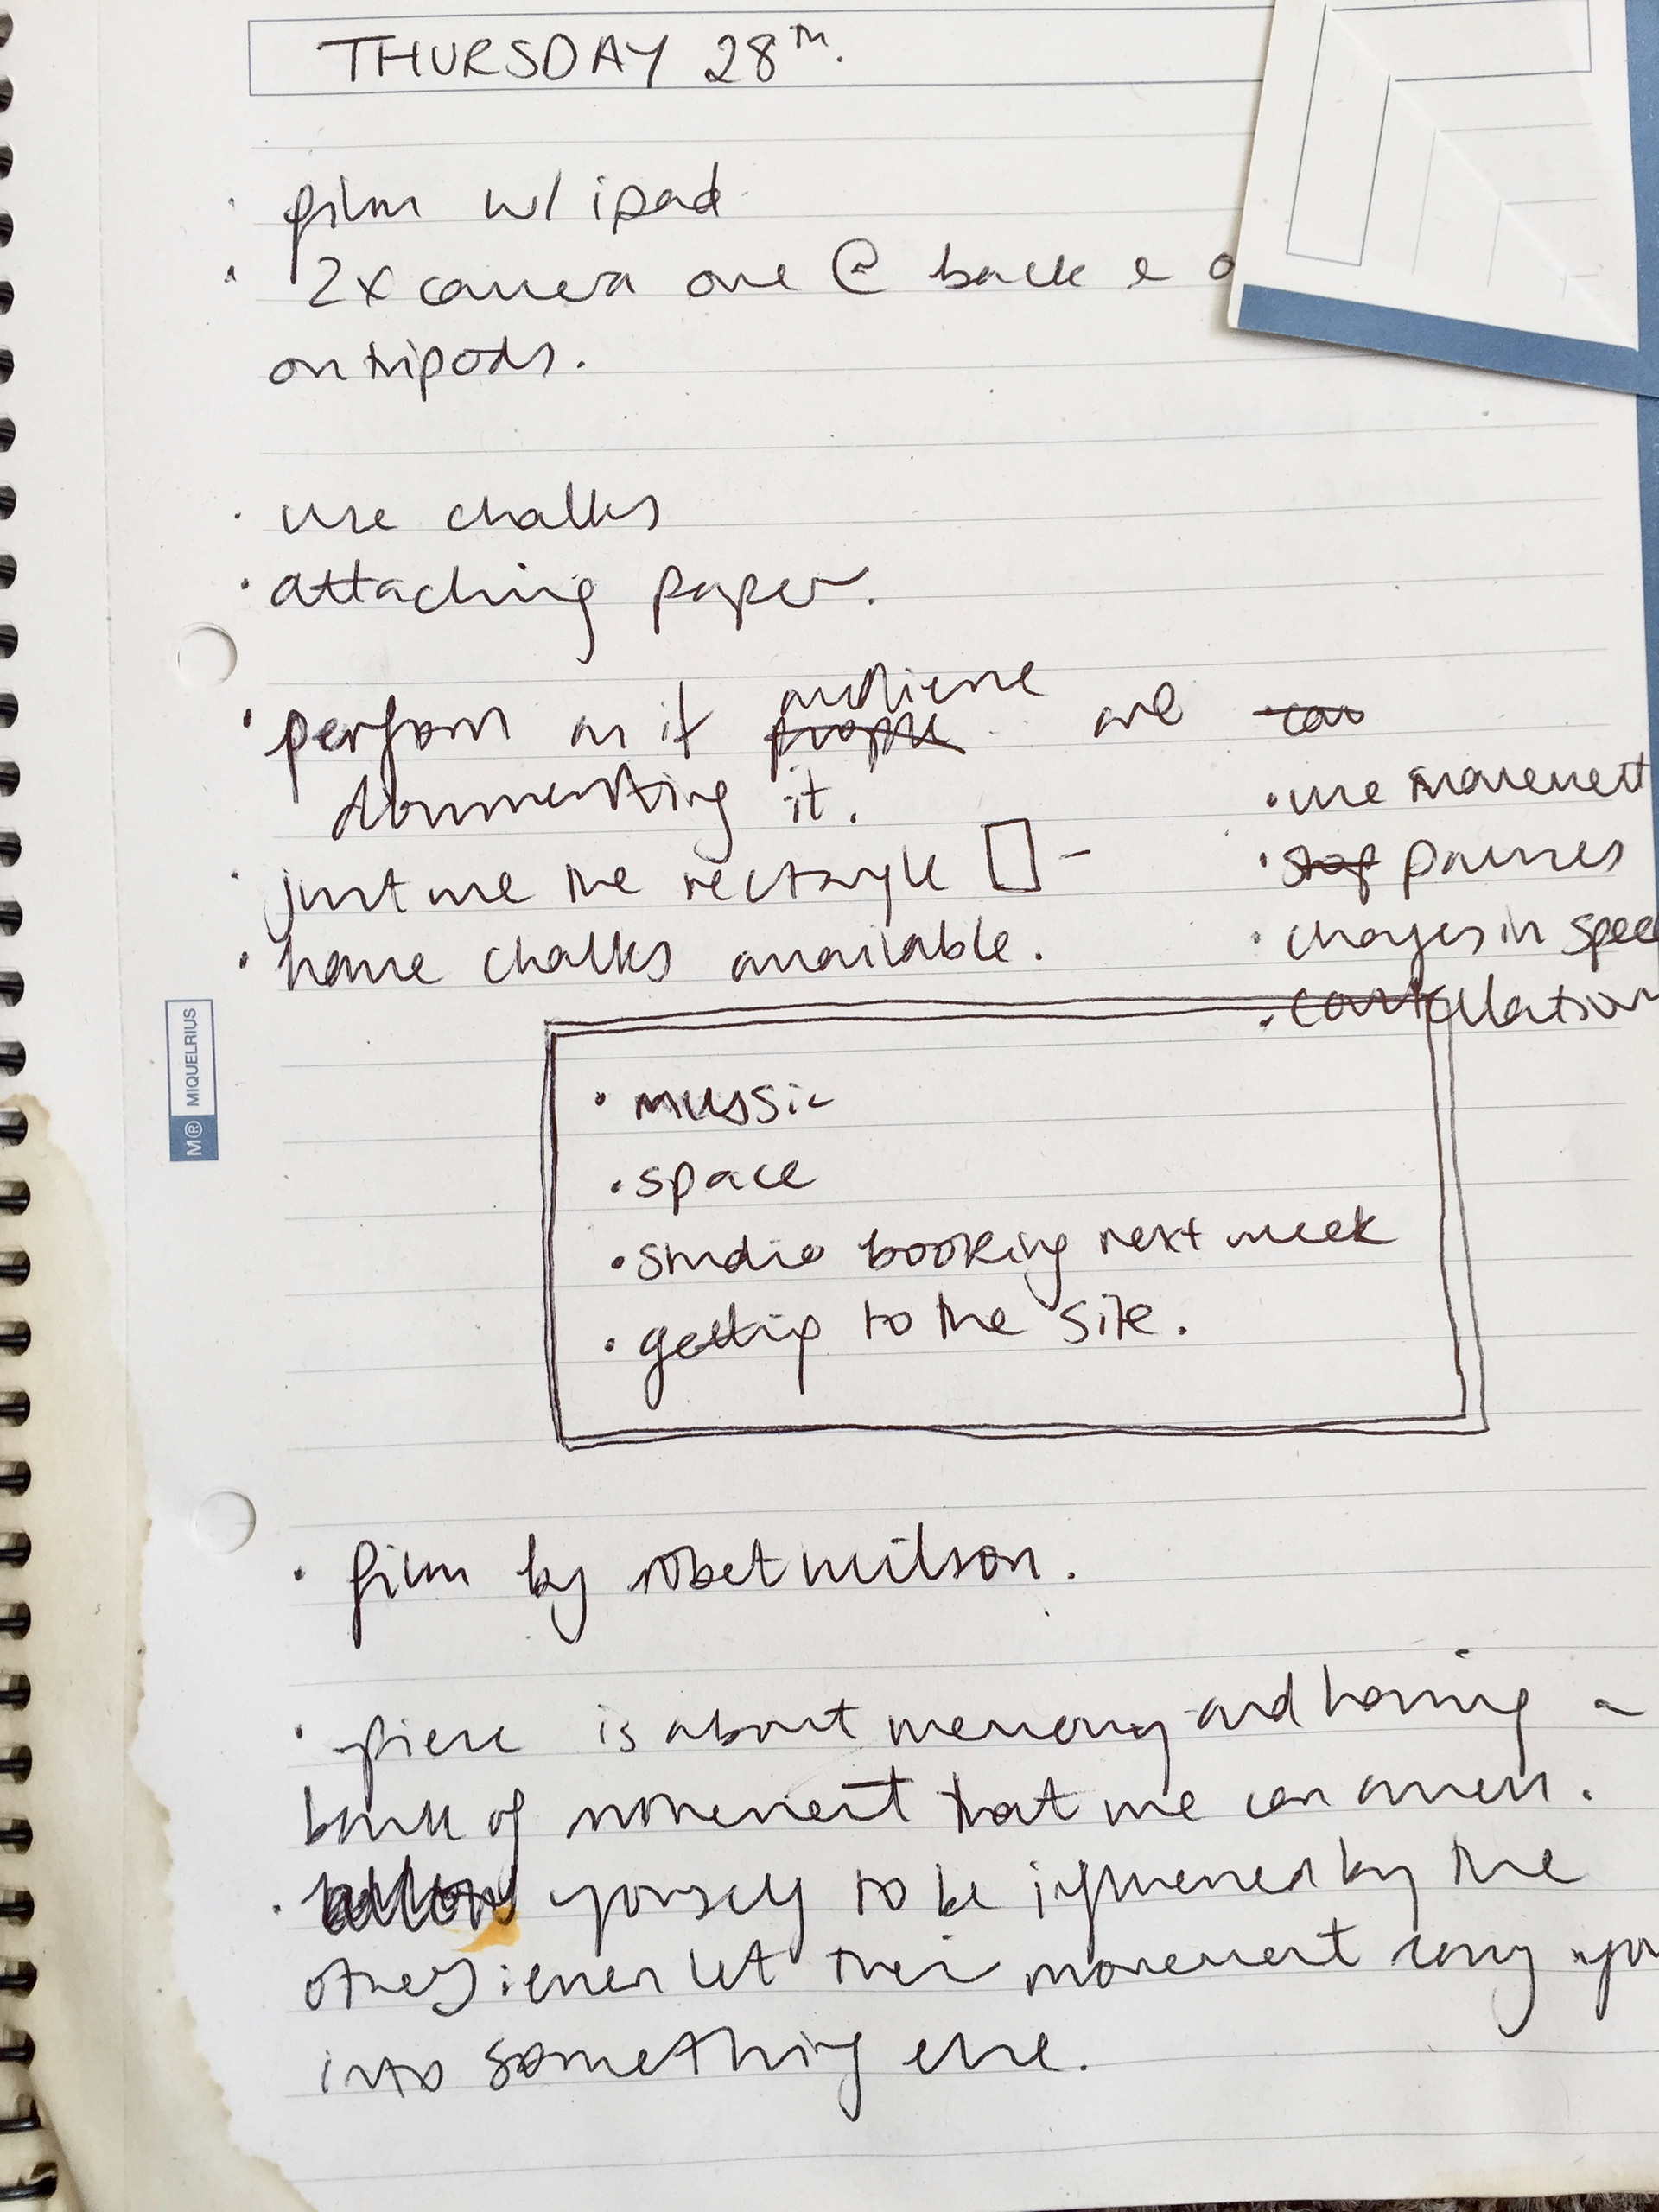 THURSDAY 28th.
· film w/ ipad
· 2x camera one @ back & o
on tripods.
· use chalks
· attaching paper.
audience
· perform as if people are can
documenting it.
· use movement
· stop pauses
· just use the rectangle ▯ -
· changes in spee
· have chalks available.
· mussic
· space
· studio booking next week
· gettig to the site.
M® MIQUELRIUS
· film by robet wilson.
· piece is about memory and having a
bank of movement that we can access.
· allow yourself to be influenced by the
let their movement carry you
into something else.